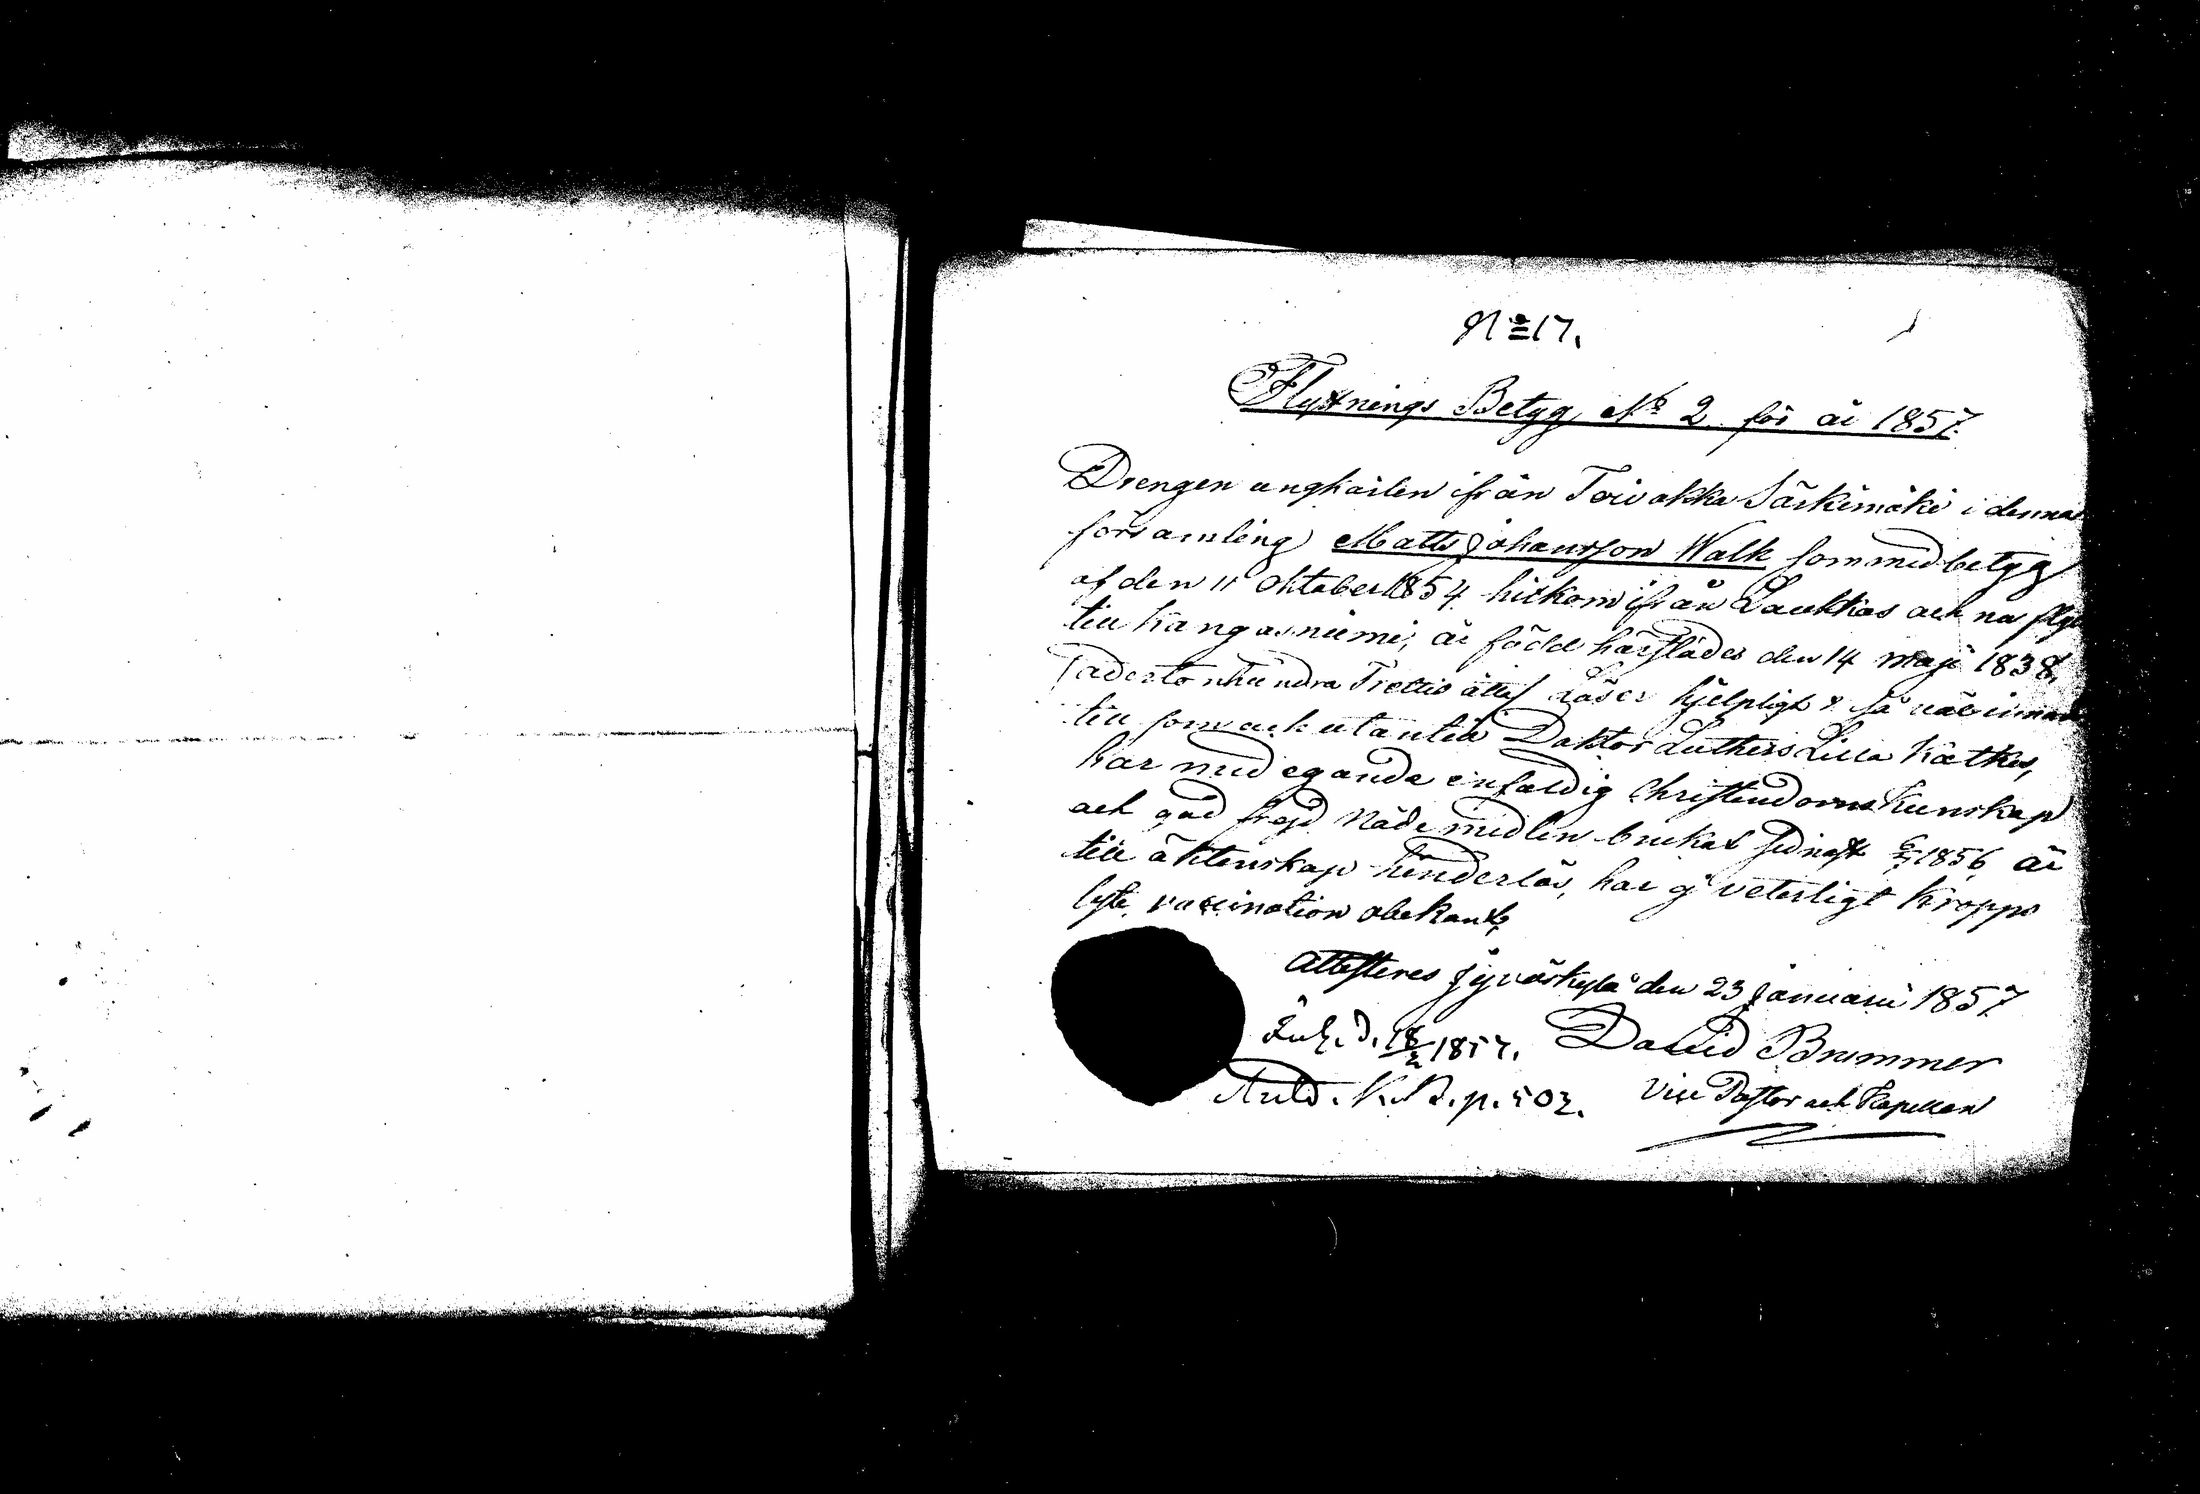 No 17.
Flyttnings Betyg No 2 för år 1857.
Drengen ungkarlen ifrån Toivakka Särkimäki i denna
församling Matts Johansson Walk som med betyg
af den 11 Oktober 1854 hitkom ifrån Laukkas och nu
till Kangasniemi, är född härstädes den 14 maji 1838,
adertonhundra Trettio åtta läser hjelpligt så
till som och utantill Doktor Luthers Lilla Katkes,
har med egande enfaldig Christendoms Kunskap
och god frejd Nådemedlen brukat sednast 1856 är
till äktenskap hinderlös, har ej veterligt Kropps
lyte, vaccination obekant,
Attesteres Jyväskylä den 23 Januarii 1857
d. 18/2 1857. David Brummer
K.B. p. 503. Vice Pastor och Kapellan